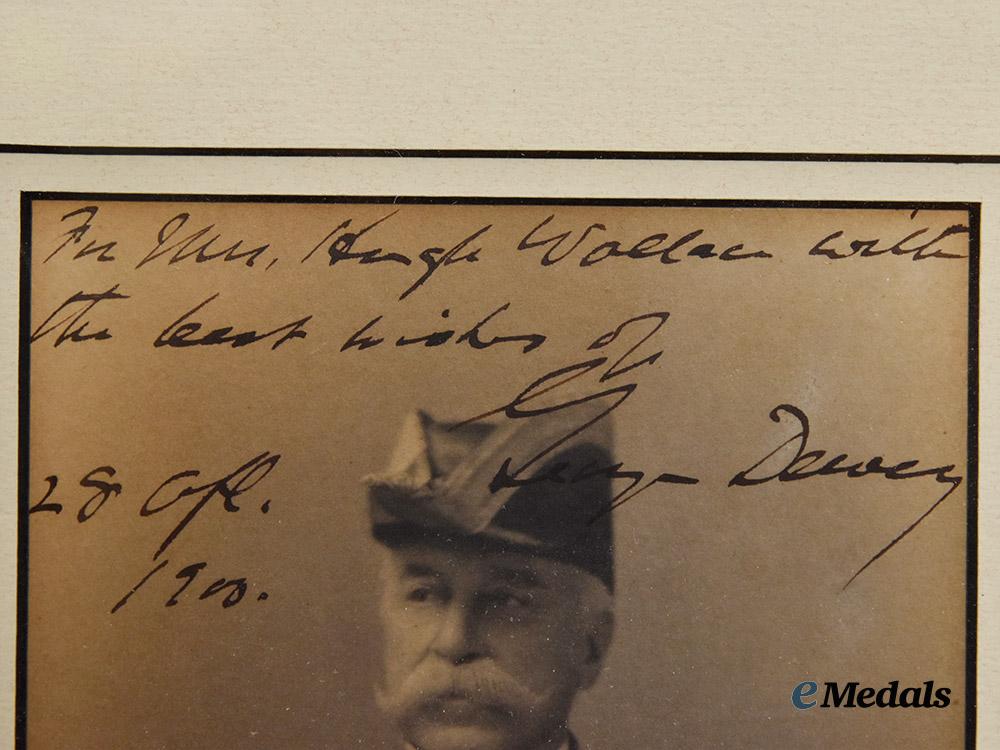 For Mrs. Hugh Wallace with
the best wishes of
George Dewey
28 Apl.
1900.
eMedals